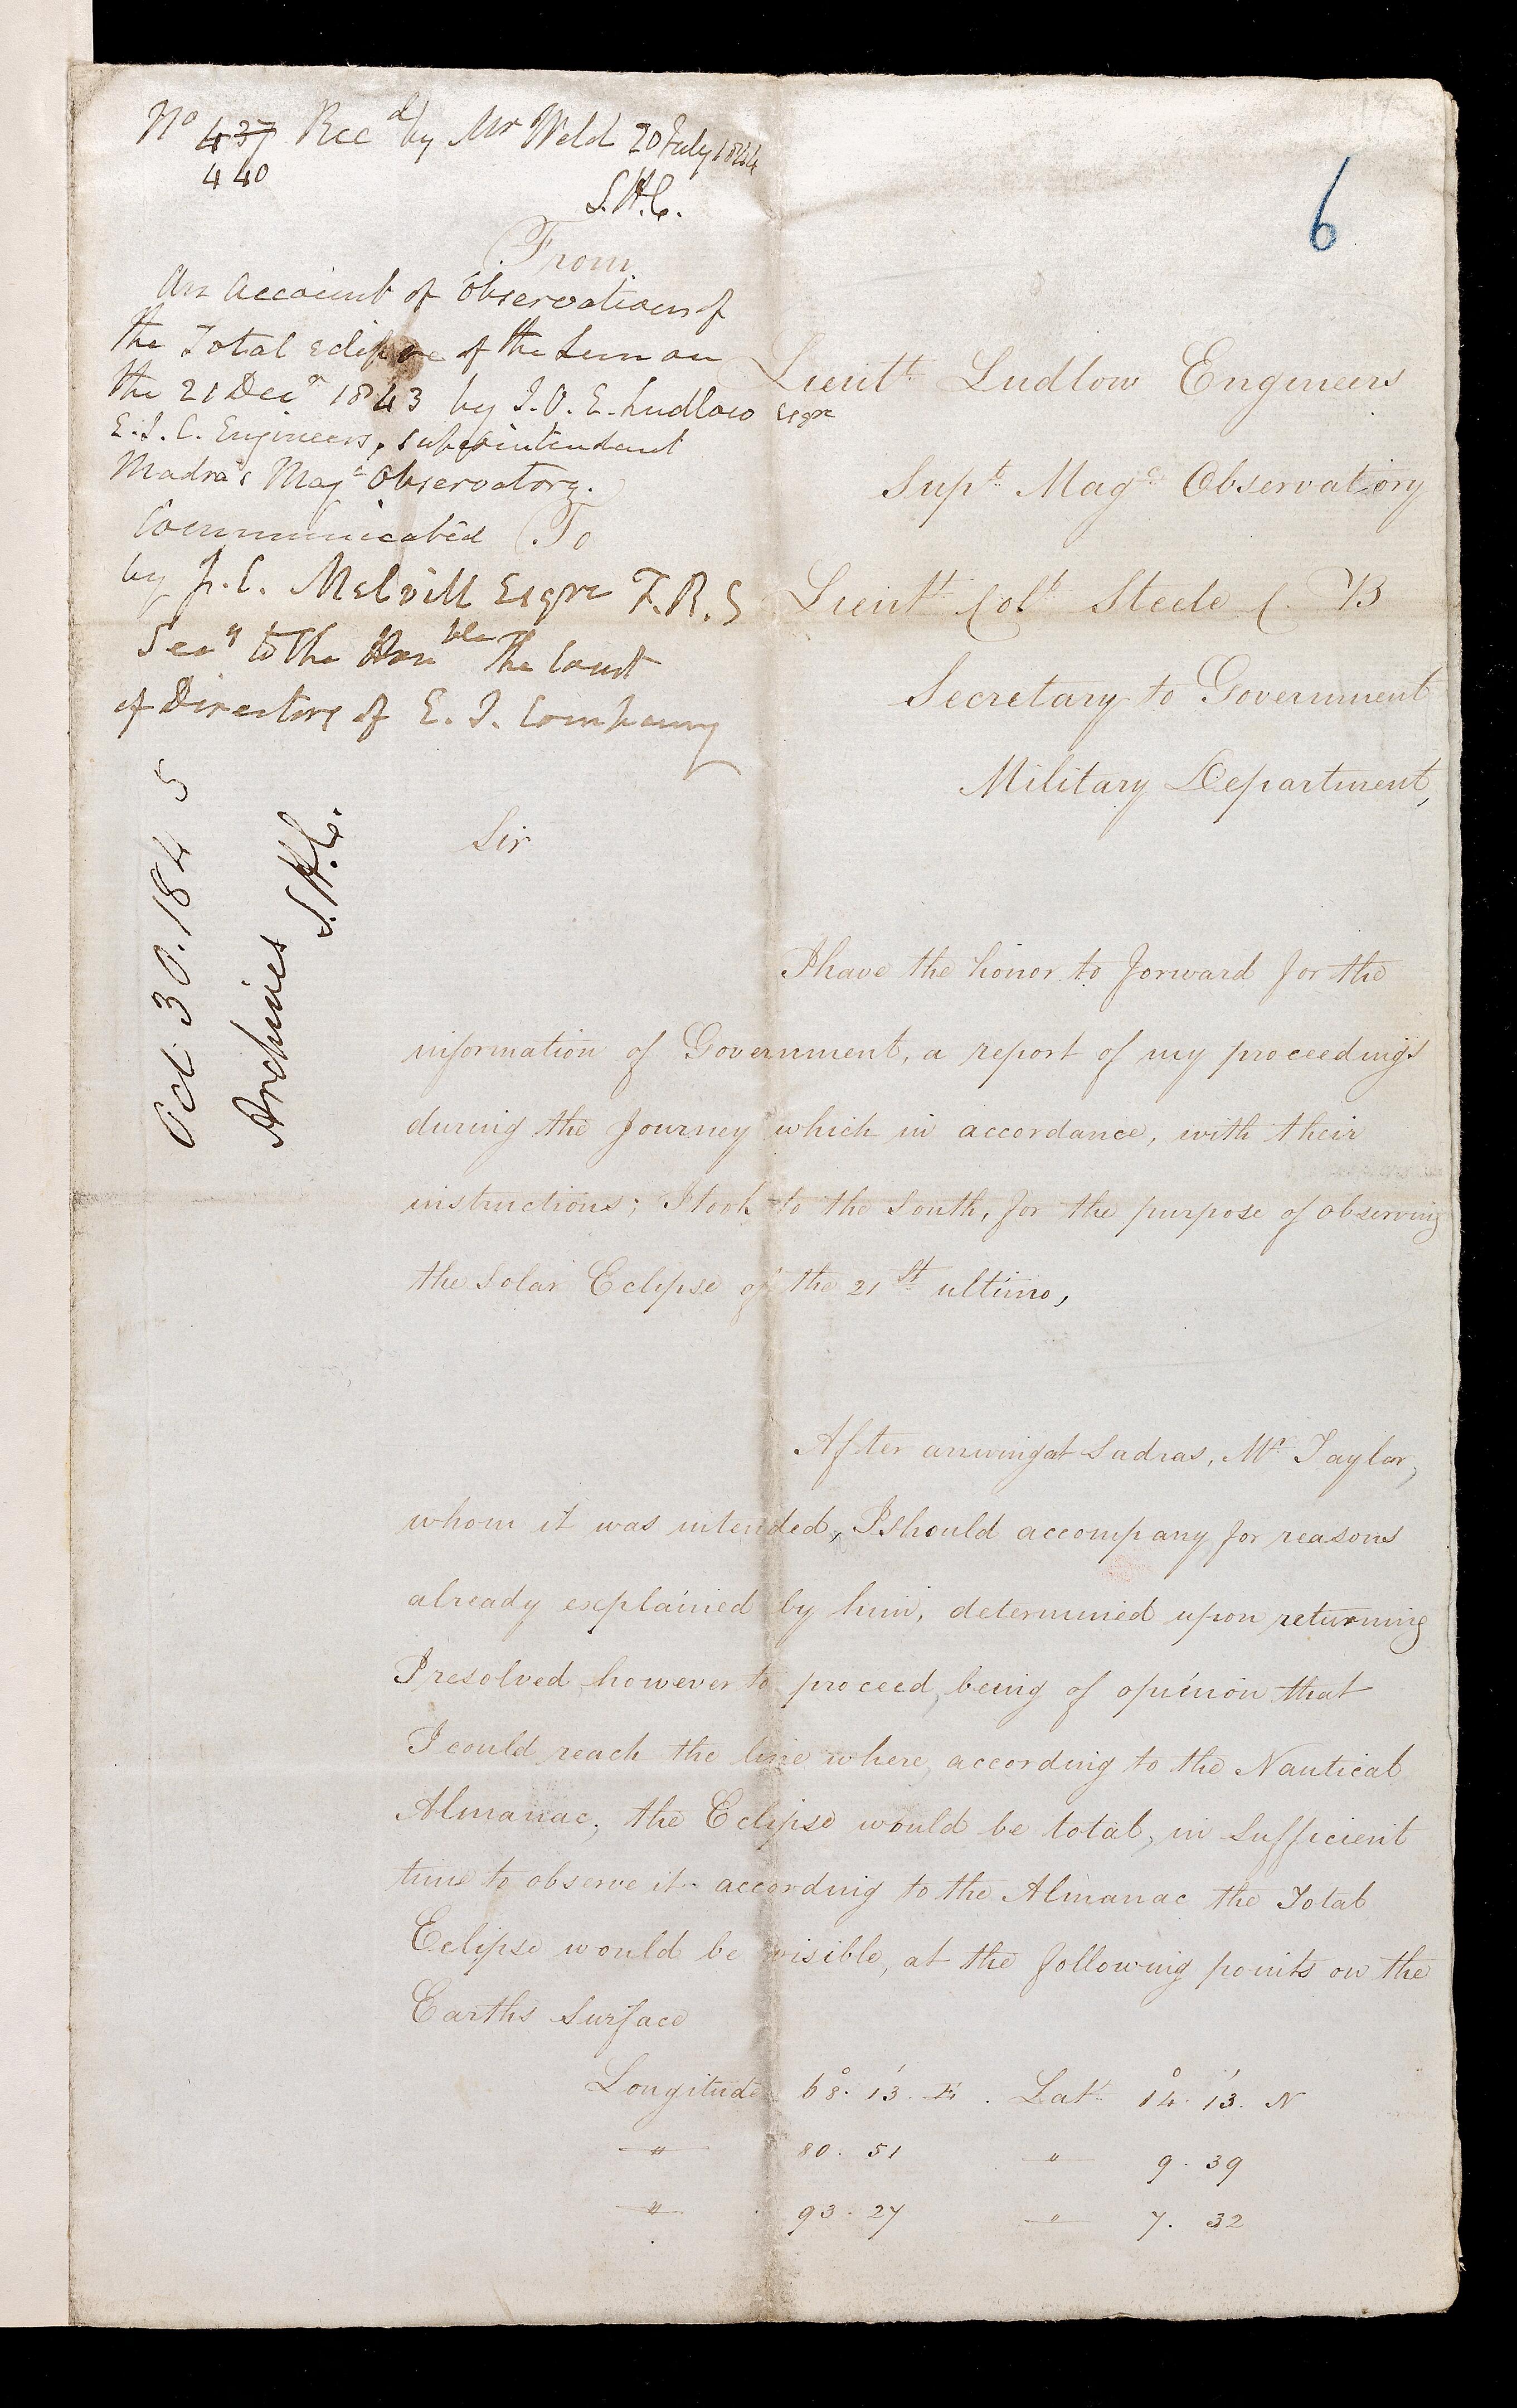 No 437 Recd by Mr Weld 20 July 1844
440
S.H.C.
6
From
An Account of Observations of
the Total eclipse of the Sun on
the 21 Decr 1843 by J.O.E. Ludlow Esqre
E.I.C. Engineers, superintendant
Madras Magc Observatory.
Communicated
by J.C. Melvill Esqre F.R.S
Secy to the Honble the Court
of Directors of E.I. Company
Lieutt Ludlow Engineers
Supt Magc Observatory
To
Lieutt Colt Steele C.B
Secretary to Government
Military Department,
Oct 30. 1845
Archives S.H.C.
Sir
I have the honor to forward for the
information of Government, a report of my proceedings
during the Journey which in accordance, with their
instructions; I took to the South, for the purpose of observing
the Solar Eclipse of the 21st ultimo,
After arriving at Sadras, Mr Taylor,
whom it was intended, I should accompany for reasons
already explained by him, determined upon returning
I resolved however to proceed, being of opinion that
I could reach the line where, according to the Nautical
Almanac, the Eclipse would be total, in Sufficient
time to observe it according to the Almanac the Total
Eclipse would be visible, at the following points on the
Earths Surface
Longitude 68°. 13'. E. Lat. 14°. 13'. N
" 80. 51 " 9. 39
" 93. 27 " 7. 32